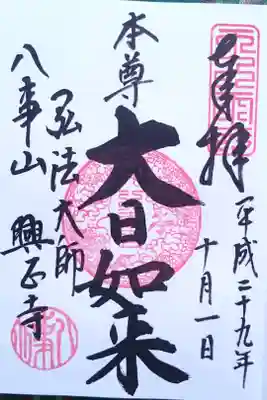 奉拝
平成二十九年
十月一日
本尊
大日如来
弘法大師
八事山
興正寺